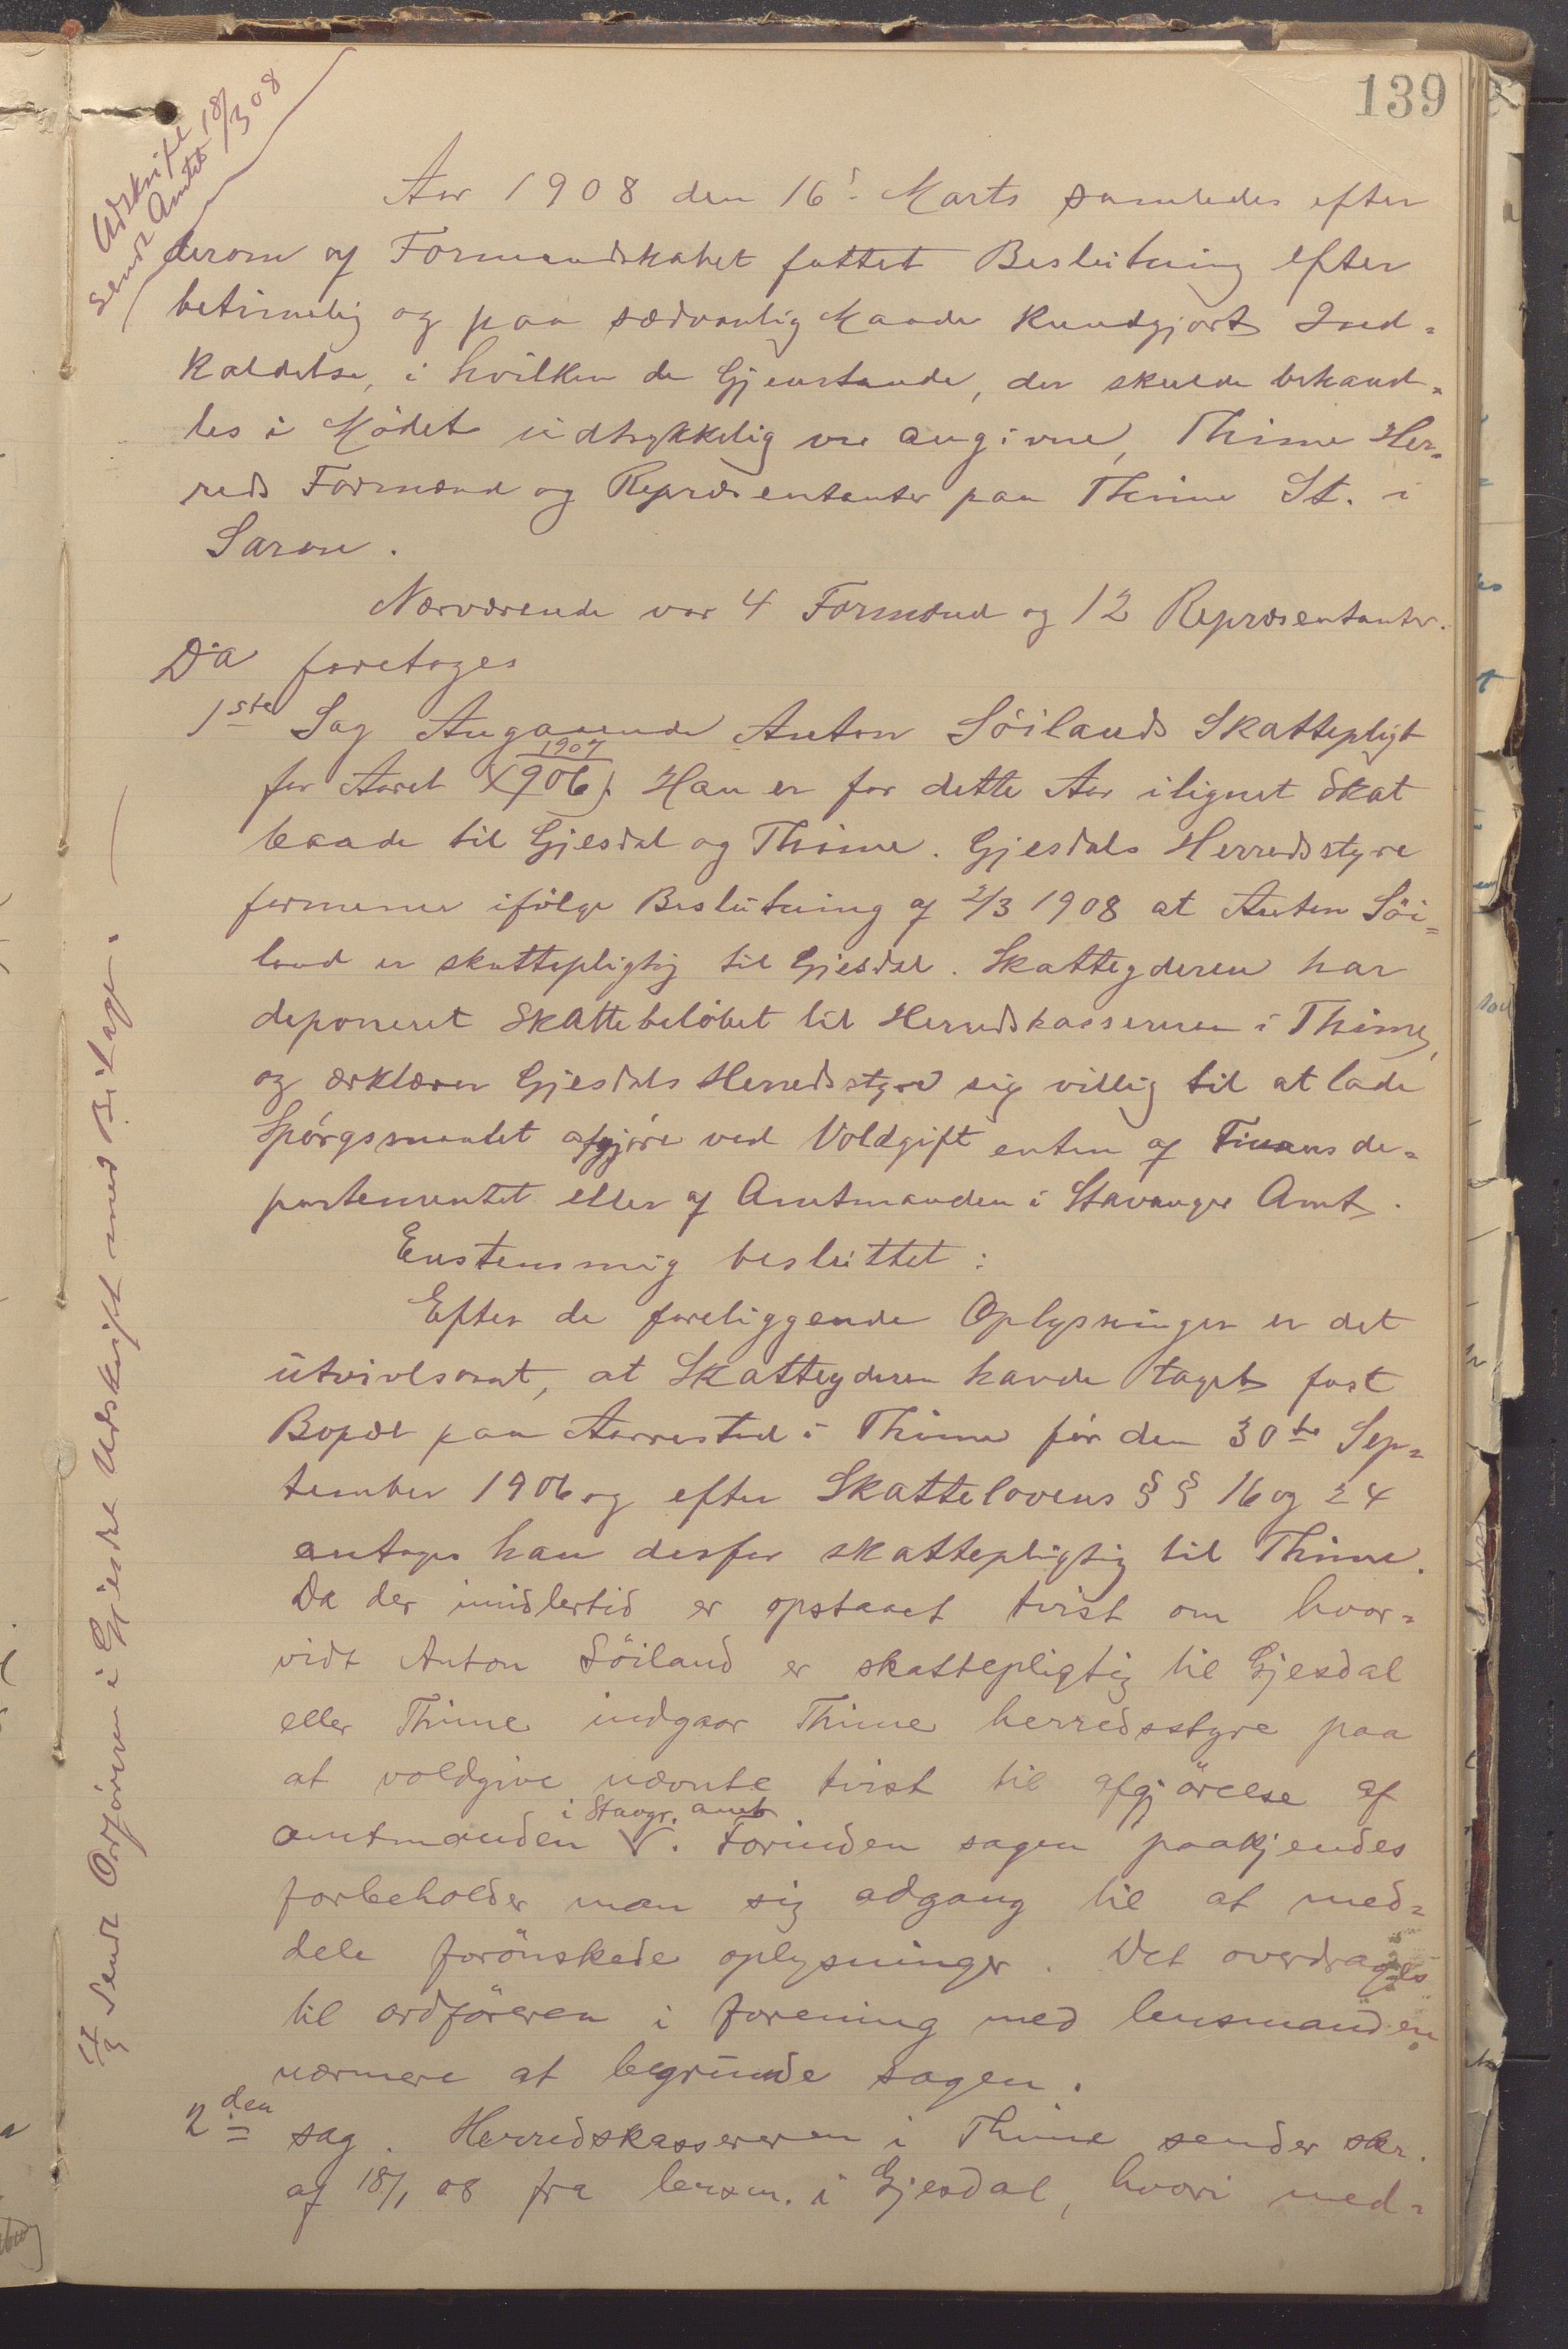 139
Udskrift
sendt Amtet 18/3 08
Aar 1908 den 16' Marts samledes efter
derom af Formandskabet fattet Beslutning efter
betimelig og paa sædvanlig Maade kundgjort Ind=
kaldelse, i hvilken de Gjenstande, der skulde behand=
les i Mødet udtrykkelig var angivne, Thime Her=
reds Formænd og Repræsentanter paa Thime St. i
Saron.
Nærværende var 4 Formænd og 12 Repræsentanter.
Da foretoges
1ste Sag Angaaende Anton Söilands Skattepligt
1907
for Aaret (1906). Han er for dette Aar ilignet Skat
baade til Gjesdal og Thime. Gjesdals Herredsstyre
formener ifølge Beslutning af 2/3 1908 at Anton Söi=
land er skattepligtig til Gjesdal. Skatteyderen har
deponeret Skattebeløbet til Herredskassereren i Thime,
og erklærer Gjesdals Herredsstyre sig villig til at lade
Spørgsmaalet afgjøre ved Voldgift enten af Finansde=
partementet eller af Amtmanden i Stavanger Amt.
Enstemmig besluttet:
Efter de foreliggende Oplysninger er det
utvivlsomt, at Skatteyderen havde taget fast
Bopæl paa Aarrestad i Thime før den 30te Sep=
tember 1906 og efter Skattelovens §§ 16 og 24
antages han derfor skattepligtig til Thime.
Da der imidlertid er opstaaet tvist om hvor=
vidt Anton Söiland er skattepligtig til Gjesdal
eller Thime indgaar Thime herredsstyre paa
at voldgive nævnte tvist til afgjörelse af
i Stavgr. amt
amtmanden V. Forinden sagen paakjendes
forbeholder man sig adgang til at med=
dele forönskede oplysninger. Det overdrages
til ordföreren i forening med lensmanden
nærmere at begrunde sagen.
2den sag. Herredskassereren i Thime sender skr.
af 18/1 08 fra lensm. i Gjesdal, hvori med=
Sendt Ordføreren i Gjesdal Udskrift med Bilage.